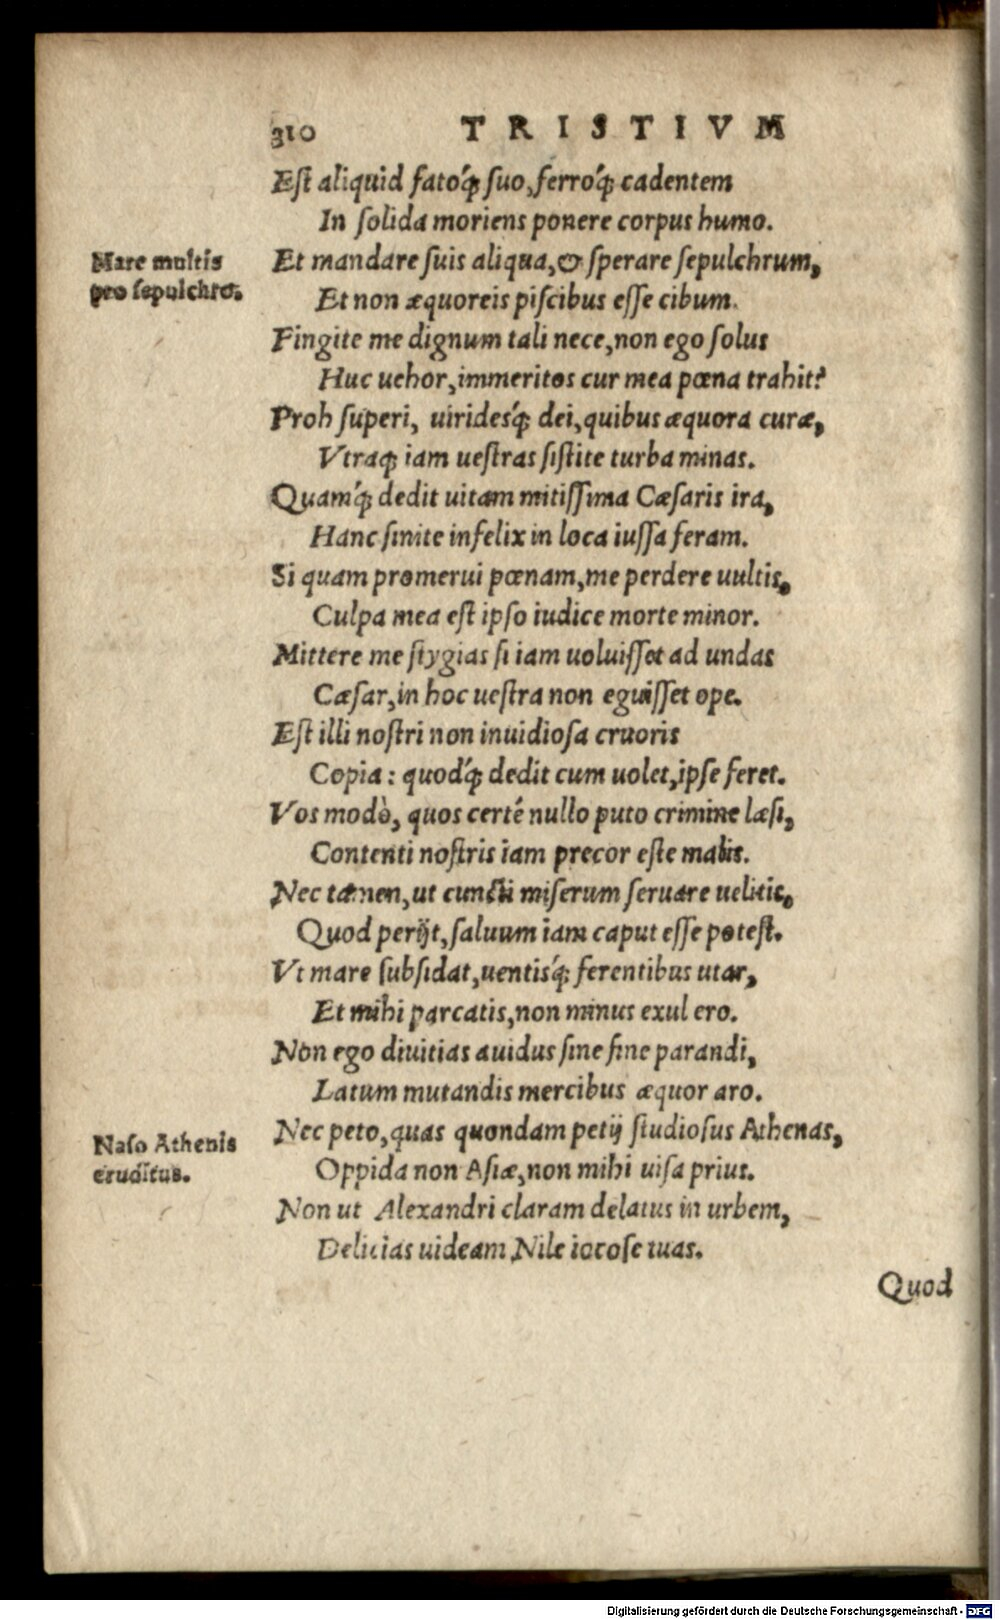 310 TRISTIVM
Est aliquid fatoq́; suo, ferroq́; cadentem
In solida moriens ponere corpus humo.
Mare multis
pro sepulchro.
Et mandare suis aliqua, & sperare sepulchrum,
Et non æquoreis piscibus esse cibum.
Fingite me dignum tali nece, non ego solus
Huc uehor, immeritos cur mea pœna trahit?
Proh superi, uiridesq́; dei, quibus æquora curæ,
Vtraq; iam uestras sistite turba minas.
Quamq́; dedit uitam mitissima Cæsaris ira,
Hanc sinite infelix in loca iussa feram.
Si quam promerui pœnam, me perdere uultis,
Culpa mea est ipso iudice morte minor.
Mittere me stygias si iam uoluisset ad undas
Cæsar, in hoc uestra non eguisset ope.
Est illi nostri non inuidiosa cruoris
Copia: quodq́; dedit cum uolet, ipse feret.
Vos modò, quos certé nullo puto crimine læsi,
Contenti nostris iam precor este malis.
Nec tamen, ut cuncti miserum seruare uelitis,
Quod perijt, saluum iam caput esse potest.
Vt mare subsidat, uentisq́; ferentibus utar,
Et mihi parcatis, non minus exul ero.
Non ego diuitias auidus sine fine parandi,
Latum mutandis mercibus æquor aro.
Naso Athenis
eruditus.
Nec peto, quas quondam petij studiosus Athenas,
Oppida non Asiæ, non mihi uisa prius.
Non ut Alexandri claram delatus in urbem,
Delicias uideam Nile iocose tuas.
Quod
Digitalisierung gefördert durch die Deutsche Forschungsgemeinschaft - DFG